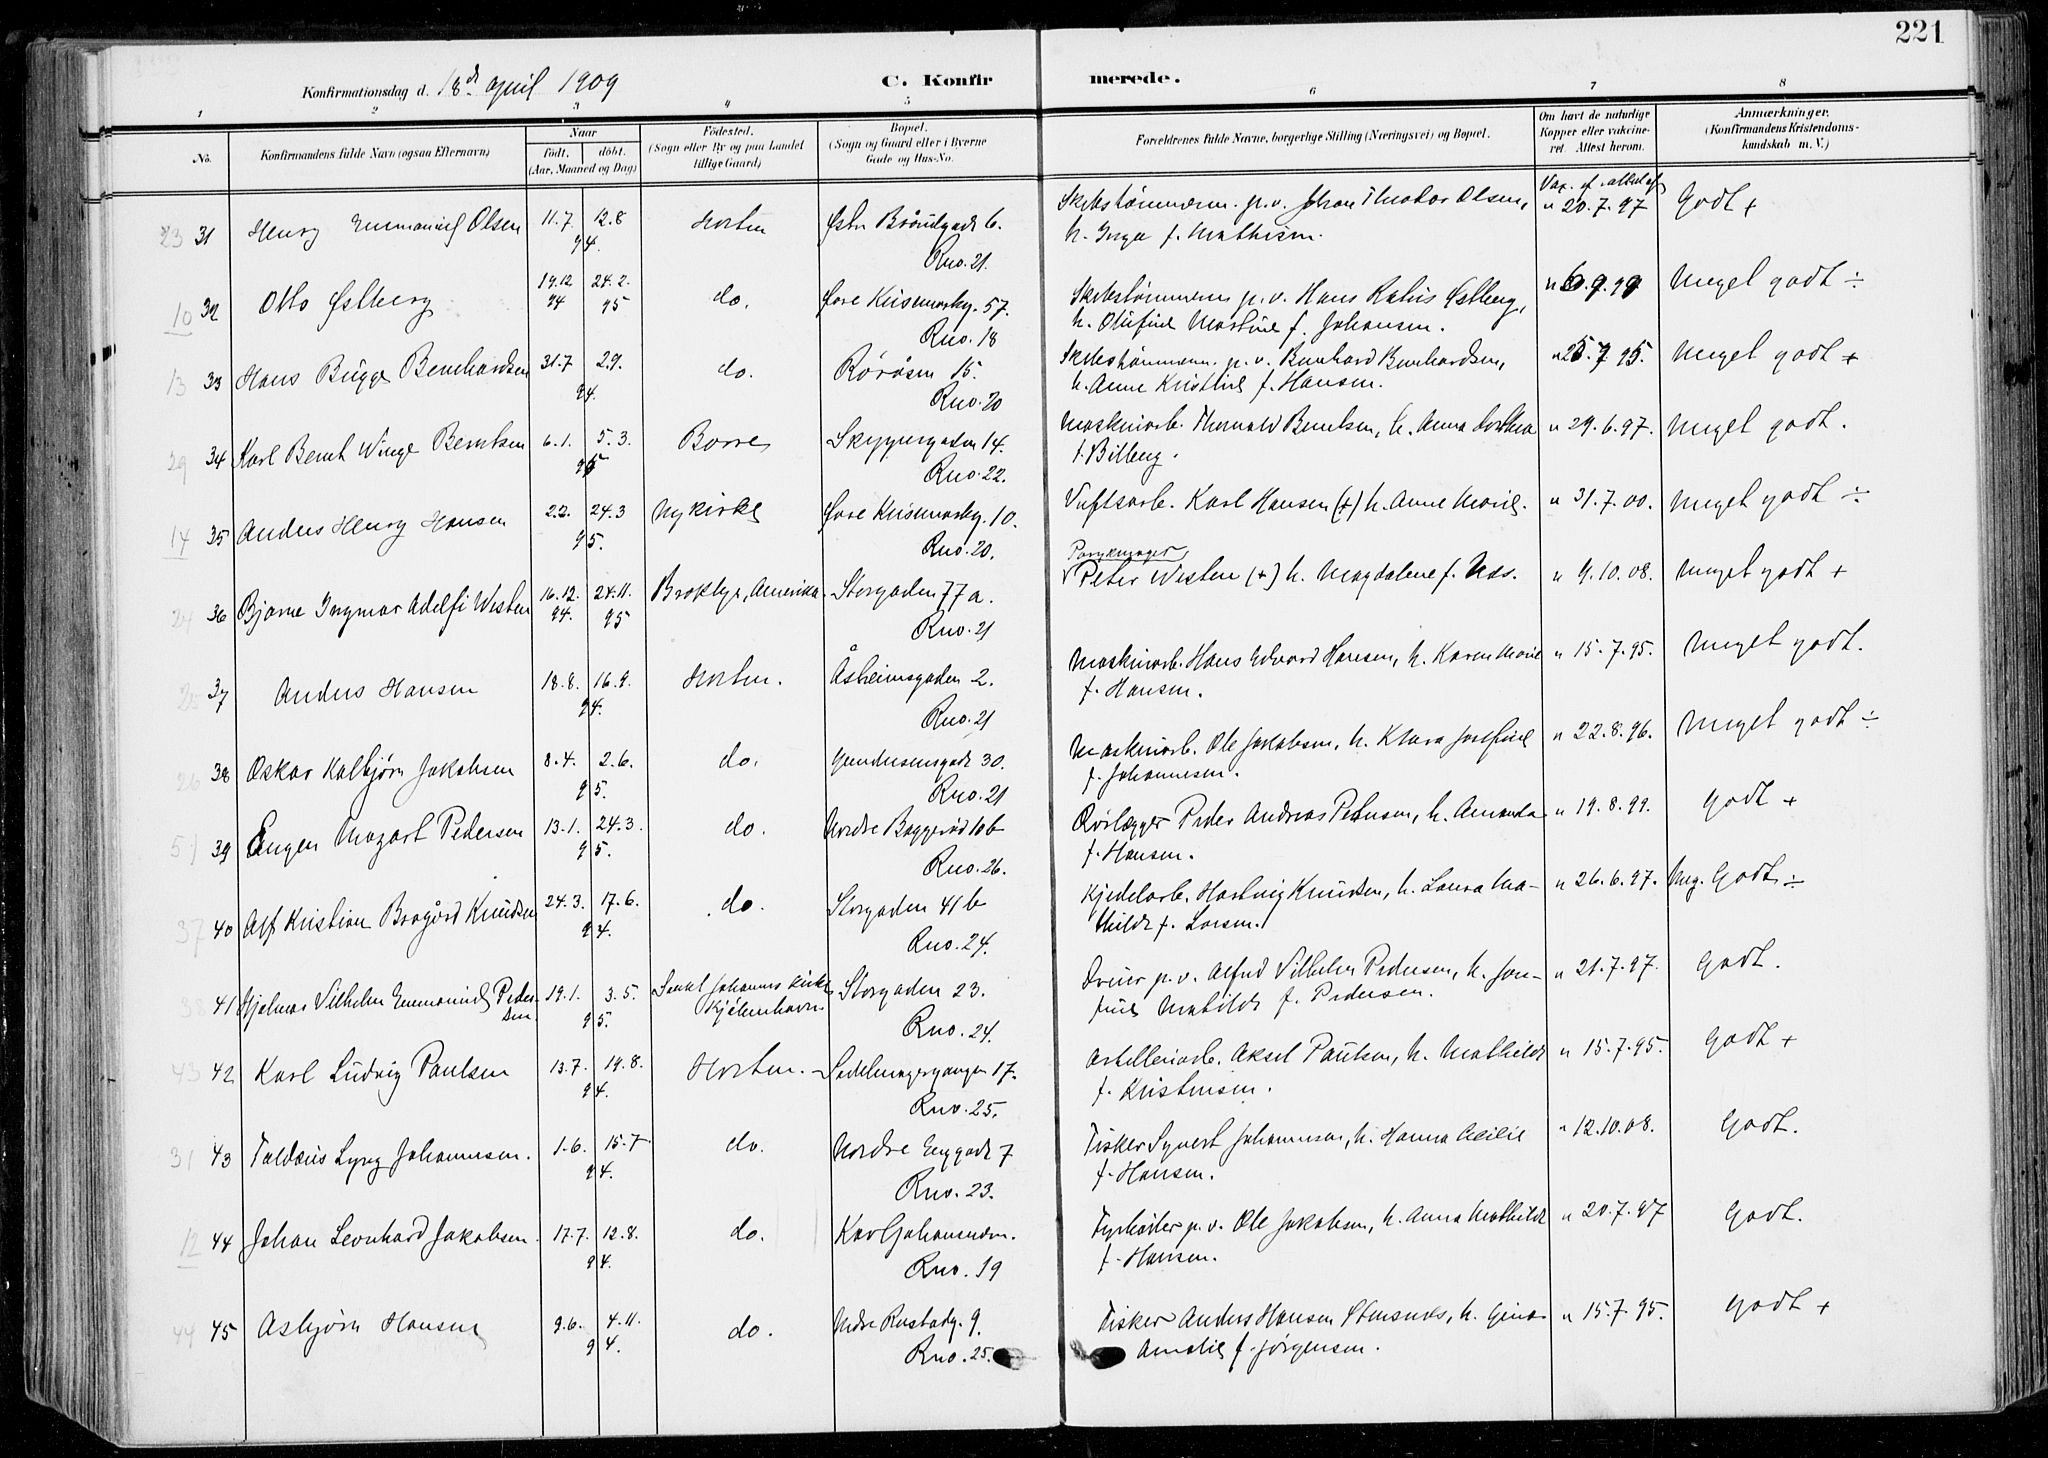 221
Konfirmationsdag d. 18de april 1909
C. Konfirmerede.
1 2 3 4 5 6 7 8
No.
Konfirmandens fulde Navn (ogsaa Efternavn)
Naar
født. døbt.
(Aar, Maaned og Dag)
Fødested.
(Sogn eller By og paa Landet
tillige Gaard)
Bopæl.
(Sogn og Gaard eller i Byerne
Gade og Hus-No.
Forældrenes fulde Navne, borgerlige Stilling (Næringsvei) og Bopæl.
Om havt de naturlige
Kopper eller vakcine-
ret. Attest herom.
Anmærkninger.
(Konfirmandens Kristendoms-
kundskab m. V.)
23 31 Henry Emmanuel Olsen 11.7 12.8 Horten Østre Brårudgade 6. Skibstømmerm. p.v. Johan Theodor Olsen, Vax. ef. attest af
94. Rno. 21. h. Inga f. Mathisen. " 20.7.97 Godt +
10 32 Otto Østberg 19.12 24.2. do. Øvre Keisemarkg. 57. Skibstømmerm. p.v. Hans Østberg, Meget godt ÷
94 95 Rno. 18 h. Olufine Martine f. Johansen.
13 33 Hans Bugge Bernhardsen 31.7 2.9. do. Røråsen 15. Skibstømmerm. p.v. Bernhard Bernhardsen, " 25.7 95. Meget godt +
94. Rno. 20 h. Anne Kristine f. Hansen.
29 34 Karl Bernt Winge Berntsen 6.1. 5.3. Borre Skippergaden 14. Maskinarb. Thorvald Berntsen, h. Anna Dorthea " 29.6.97. Meget godt.
95 Rno. 22. f. Billberg.
14 35 Anders Henry Hansen 22. 24.3 Nykirke Øvre Keisemarkg. 10. Verftsarb. Karl Hansen (+) h. Anne Marie. " 31.7.00. Meget godt ÷
95. Rno. 20.
24 36 Bjarne Ingmar Adolf Westen 16.12. 24.11. Brooklyn, Amerika. Storgaden 77a. Parykmager Peter Westen (+) h. Magdalene f. Næs. " 9.10.08. Meget godt +
94. 95 Rno. 21
25 37 Anders Hansen 18.8. 16.9. Horten. Åsheimsgaden 2. Maskinarb. Hans Edvard Hansen, h. Karen Marie " 15.7.95. Meget godt.
94. Rno. 21 f. Hansen.
26 38 Oskar Kolbjørn Jakobsen 8.4. 2.6. do. Gundersensgade 30. Maskinarb. Ole Jakobsen, h. Klara Josefine " 22.8.96. Meget godt ÷
95. Rno. 21 f. Johannesen.
51 39 Eugen Mozart Pedersen 13.1. 24.3. do. Nordre Baggerød 10b Peder Andreas Petersen, h. Amanda " 19.8.99. Godt +
95. Rno. 26. f. Hansen.
37 40 Alf Kristian Bragård Knudsen 24.3. 17.6. do. Storgaden 41b Kjedelarb. Hartvig Knudsen, h. Laura Ma- " 26.6.97. Meg. Godt ÷
94. Rno. 24. thilde f. Larsen.
38 41 Hjalmar Vilhelm Emmanuel Peder- 19.1. 3.5. Sankt Johannes Kirke Storgaden 23. Dreier p.v. Alfred Vilhelm Pedersen, h. Jose- " 21.7.97. Godt.
sen 95. Kjøbenhavn Rno. 24. fine Matilde f. Pedersen.
43 42 Karl Ludvig Paulsen 13.7. 19.8. Horten. Sadelmagergangen 17. Artilleriarb. Aksel Paulsen, h. Mathilde " 15.7.95. Godt +
94. Rno. 25. f. Kristensen.
31 43 Taldæus Lyng Johannesen. 1.6. 15.7 do. Nordre Enggade 7 Fisker Syvert Johannesen, h. Hanna Cecilie " 12.10.08. Godt.
94. Rno. 23. f. Hansen.
12 44 Johan Leonhard Jakobsen. 17.7. 12.8. do. Karljohansvern. Fyrbøder p.v. Ole Jakobsen, h. Anna Mathilde " 20.7.97 Godt.
94. Rno. 19 f. Hansen.
44 45 Asbjørn Hansen 9.6. 4.11. do. Nedre Rustadg. 9. Fisker Anders Hansen Stensnæs, h. Gina " 15.7.95. Godt +
94. Rno. 25. Amalie f. Jørgensen.